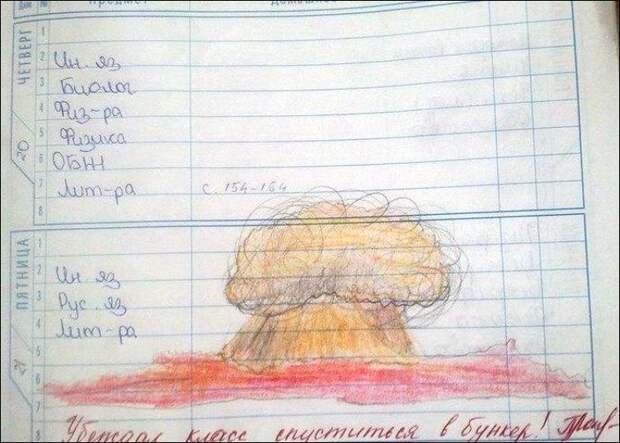 ПРЕДМЕТ
№
ЧЕТВЕРГ
20
1
2 Ин. яз
3 Биолог
4 Физ-ра
5 Физика
6 ОБЖ
7 Лит-ра с. 154-164
8
ПЯТНИЦА
21
1
2 Ин. яз
3 Рус. яз
4 Лит-ра
5
6
7
Убеждал класс спуститься в бункер!